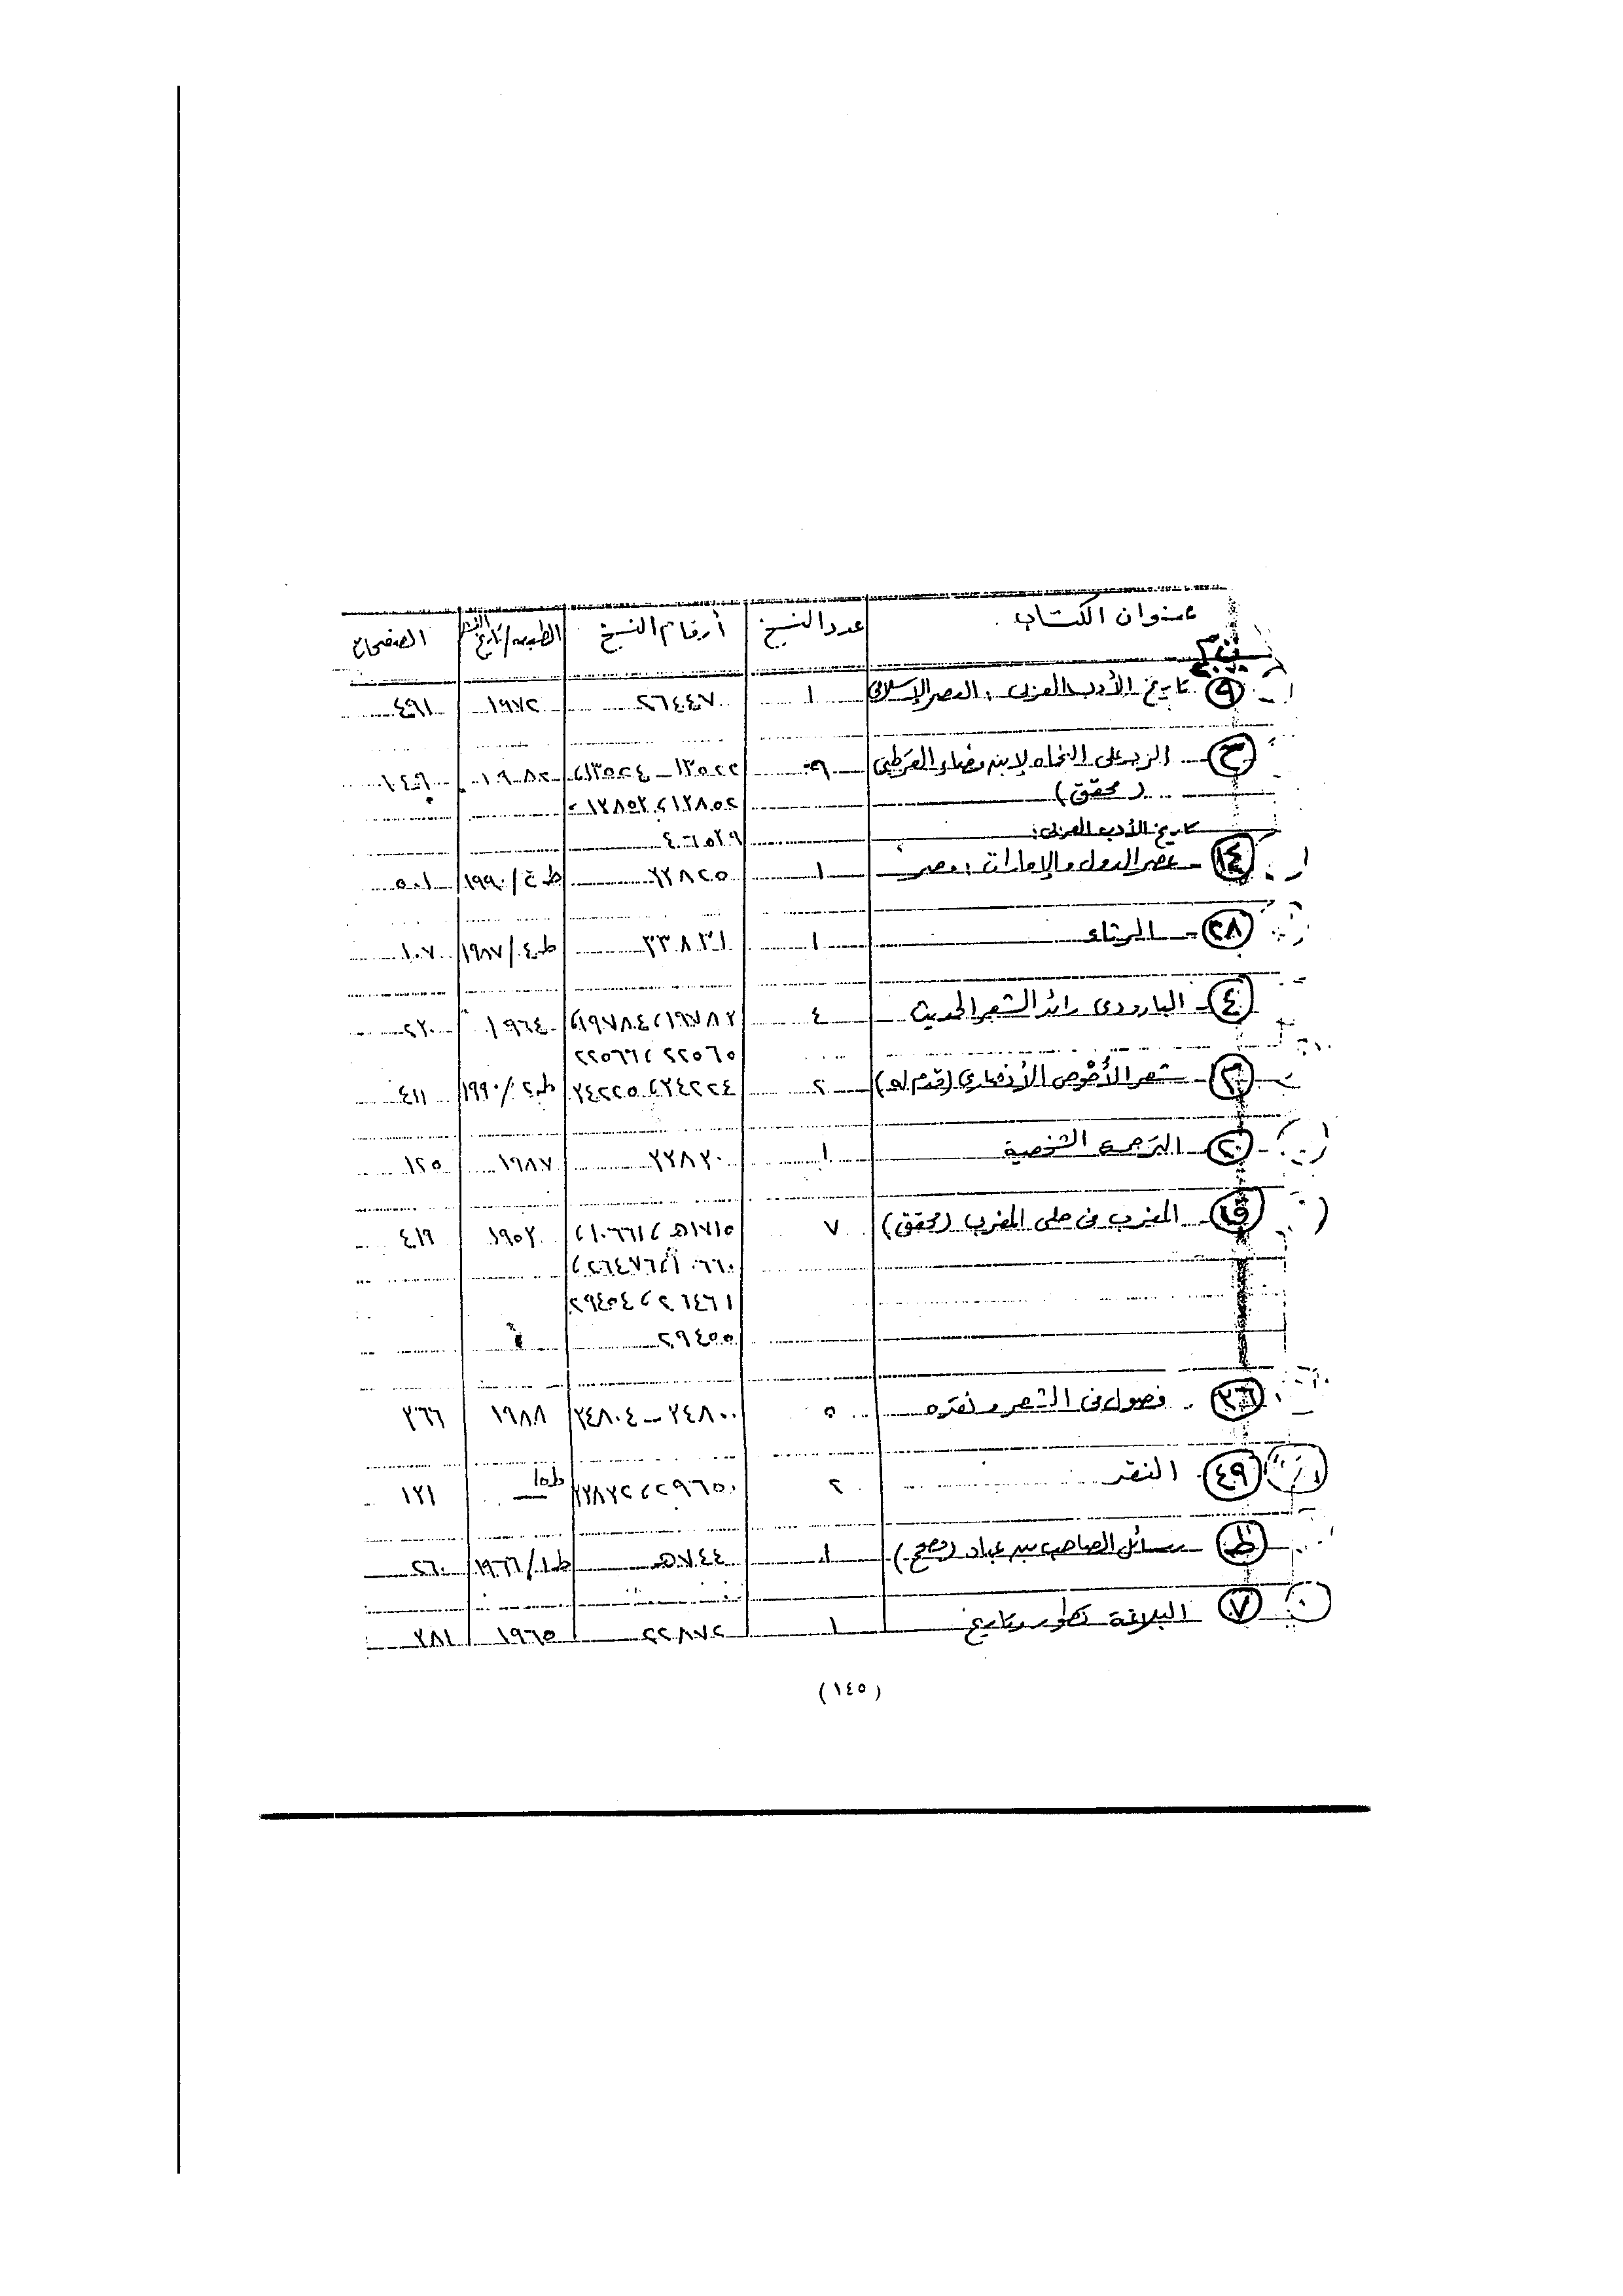 عنوان الكتاب عدد النسخ أرقام النسخ الطبعة/تاريخ النشر الصفحات
٩ - تاريخ الأدب العربى : العصر الإسلامى ١ ٢٦٤٤٧ ١٩٧٢ ٤٦١
ح - الرد على النحاه لابن مضاء القرطبى ١٣٥٢٢ - ١٣٥٢٤،
(محقق)
تاريخ الأدب العربى:
١٤ - عصر الدول والإمارات : مصر ١ ٢٢٨٢٥ ١٩٩٠ ٥٠١
٢٨ - الرثاء ١ ط٤/١٩٨٧ ١٠٧
٤ - البارودى رائد الشعر الحديث ٤ ١٩٧٨٣، ١٩٧٨٤، ١٩٦٤ ٢٣٠
٢٢٥٦٥، ٢٢٥٦٦
٣ - شعر الأحوص الأنصارى (قدم له) ٢ ٢٤٢٢٤، ٢٤٢٢٥ ط٢/١٩٩٠ ٤١١
٢٠ - الترجمة الشخصية ١ ٢٢٨٣٠ ١٩٨٧ ١٢٥
المغرب فى حلى المغرب (محقق) ٧ ١٧١٥هـ، ١٠٦٦١، ١٩٥٣ ٤١٩
٢٦٤٧٦،
٢٦٤٦١، ٢٩٤٥٤
٢٩٤٥٥
٣٦ - فصول فى الشعر ونقده ٥ ٢٤٨٠٠ - ٢٤٨٠٤ ١٩٨٨ ٣٦٦
٤٩ - النقد ٢ ٢٩٦٥٠، ٢٢٨٧٢ ط٥ ١٢١
ظ - رسائل الصاحب بن عباد (مصحح) ١ ٧٤٤هـ ط١/١٩٦٦ ٢٦٠
٧ - البلاغة تطور وتاريخ ١ ٢٢٨٧٢ ١٩٦٥ ٣٨١
(١٤٥)